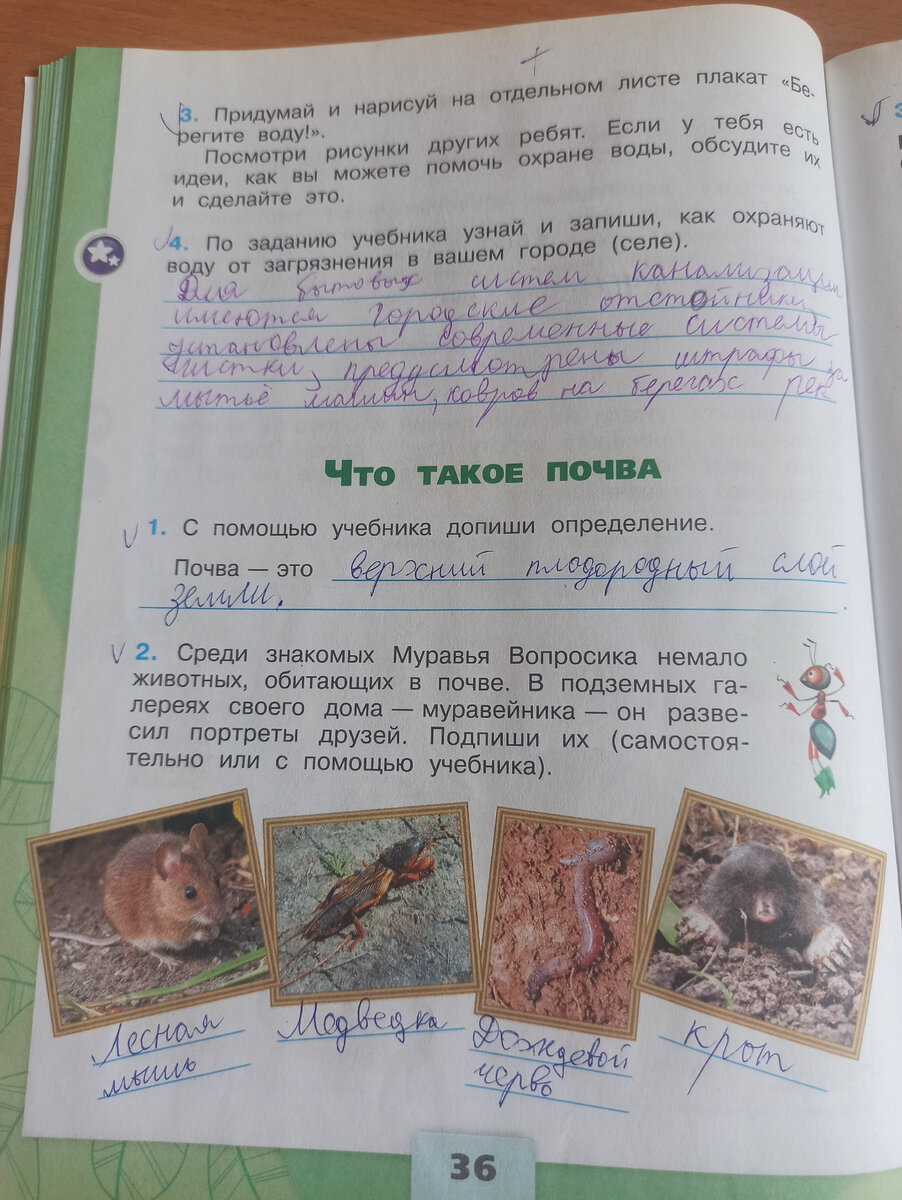 3. Придумай и нарисуй на отдельном листе плакат «Бе-
регите воду!».
Посмотри рисунки других ребят. Если у тебя есть
идеи, как вы можете помочь охране воды, обсудите их
и сделайте это.
4. По заданию учебника узнай и запиши, как охраняют
воду от загрязнения в вашем городе (селе).
Для бытовых систем канализации
имеются городские отстойники,
установлены современные системы
чистки, предусмотрены штрафы за
мытьё машин, ковров на берегах рек
Что такое почва
1. С помощью учебника допиши определение.
Почва — это верхний плодородный слой
земли.
2. Среди знакомых Муравья Вопросика немало
животных, обитающих в почве. В подземных га-
лереях своего дома — муравейника — он разве-
сил портреты друзей. Подпиши их (самостоя-
тельно или с помощью учебника).
Лесная
мышь
Медведка
Дождевой
червь
крот
36